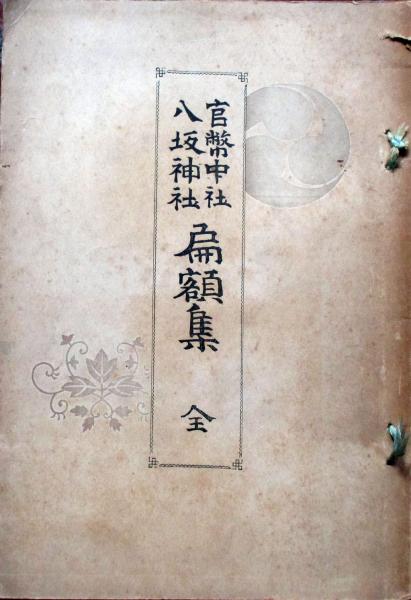 官幣中社
八坂神社
扁額集
全